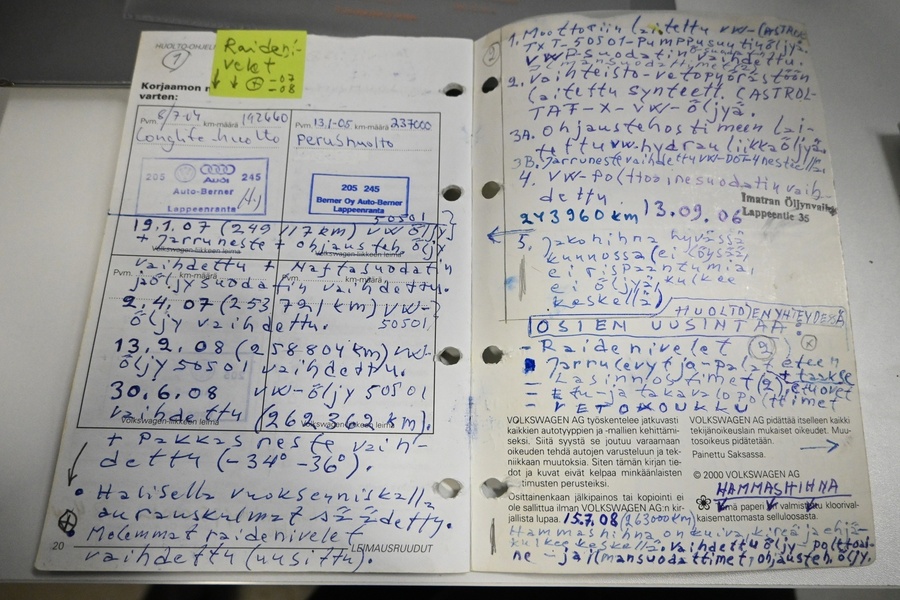 HUOLTO-OHJELM
1
Raideni-
velet
-07
-08
Korjaamon
varten:
Pvm. 8/7-04 km-määrä 192660
Longlife-huolto
205 245
Audi
Auto-Berner
Lappeenranta
Pvm. 13.1-05 km-määrä 237000
Perushuolto
205 245
Berner Oy Auto-Berner
Lappeenranta
50501
19.1.07 (249 117km) VW öljy
+ Jarruneste + ohjausteh. öljy
Volkswagen-liikkeen leima
Volkswagen-liikkeen leima
vaihdettu + Naftasuodatin
Pvm. km-määrä
Pvm. km-määrä
ja öljysuodatin vaihdettu.
2.4.07 (253 791 km) VW-
öljy vaihdettu. 50501
13.2.08 (258.804km) VW-
öljy 50501 vaihdettu.
30.6.08 VW-öljy 50501
vaihdettu (262 262 km).
Volkswagen-liikkeen leima
Volkswagen-liikkeen leima
+ Pakkasneste vaih-
dettu (-34° -36°).
• Halisella vuokseyniskalla
aurauskulmat säädetty.
• Molemmat raidenivelet
vaihdettu (uusittu).
20 LEIMAUSRUUDUT
2
1. Moottoriin laitettu VW-CASTROL
TXT-50501-Pumppusuutinöljyä.
VW Suodatin vaihdettu.
2. Vaihteisto-vetopyörästöön
laitettu synteett. CASTROL-
TAF-X-VW-öljyä.
3A. Ohjaustehostimeen lai-
tettu VW-hydrauliikkaöljyä.
3B. Jarruneste vaihdettu VW-DOT4 nesteellä.
4. VW-Polttoainesuodatin vaih-
dettu.
Imatran Öljynvaihto
Lappeentie 35
243960 km 13.09.06
5. Jakohihna hyvässä
kunnossa (ei löysää,
ei rispaantumia,
ei öljyä, kulkee
keskellä)
HUOLTOJEN YHTEYDESSÄ
OSIEN UUSINTAA:
- Raidenivelet (2)
Jarrulevyt ja -palat eteen
+ taakse
- Lasinnostimet (2), etuovet
- Etu- ja takavalopolttimet
- VETOKOUKKU
VOLKSWAGEN AG työskentelee jatkuvasti
kaikkien autotyyppien ja mallien kehittämi-
seksi. Siitä syystä se joutuu varaamaan
oikeuden tehdä autojen varusteluun ja tek-
niikkaan muutoksia. Siten tämän kirjan tie-
dot ja kuvat eivät kelpaa minkäänlaisten
timusten perusteiksi.
Osittainenkaan jälkipainos tai kopiointi ei
ole sallittua ilman VOLKSWAGEN AG:n kir-
jallista lupaa.
VOLKSWAGEN AG pidättää itselleen kaikki
tekijänoikeuslain mukaiset oikeudet. Muu-
tosoikeus pidätetään.
Painettu Saksassa.
© 2000 VOLKSWAGEN AG
HAMMASHIHNA
mä paperi valmistettu kloorival-
kaisemattomasta selluloosasta.
15.7.08 (263000km)
Hammashihna on kuiva, kireä, ehjä
kulkee keskellä. Vaihdettu öljy-, polttoai-
ne- ja ilmansuodattimet, ohjausteh. öljy.